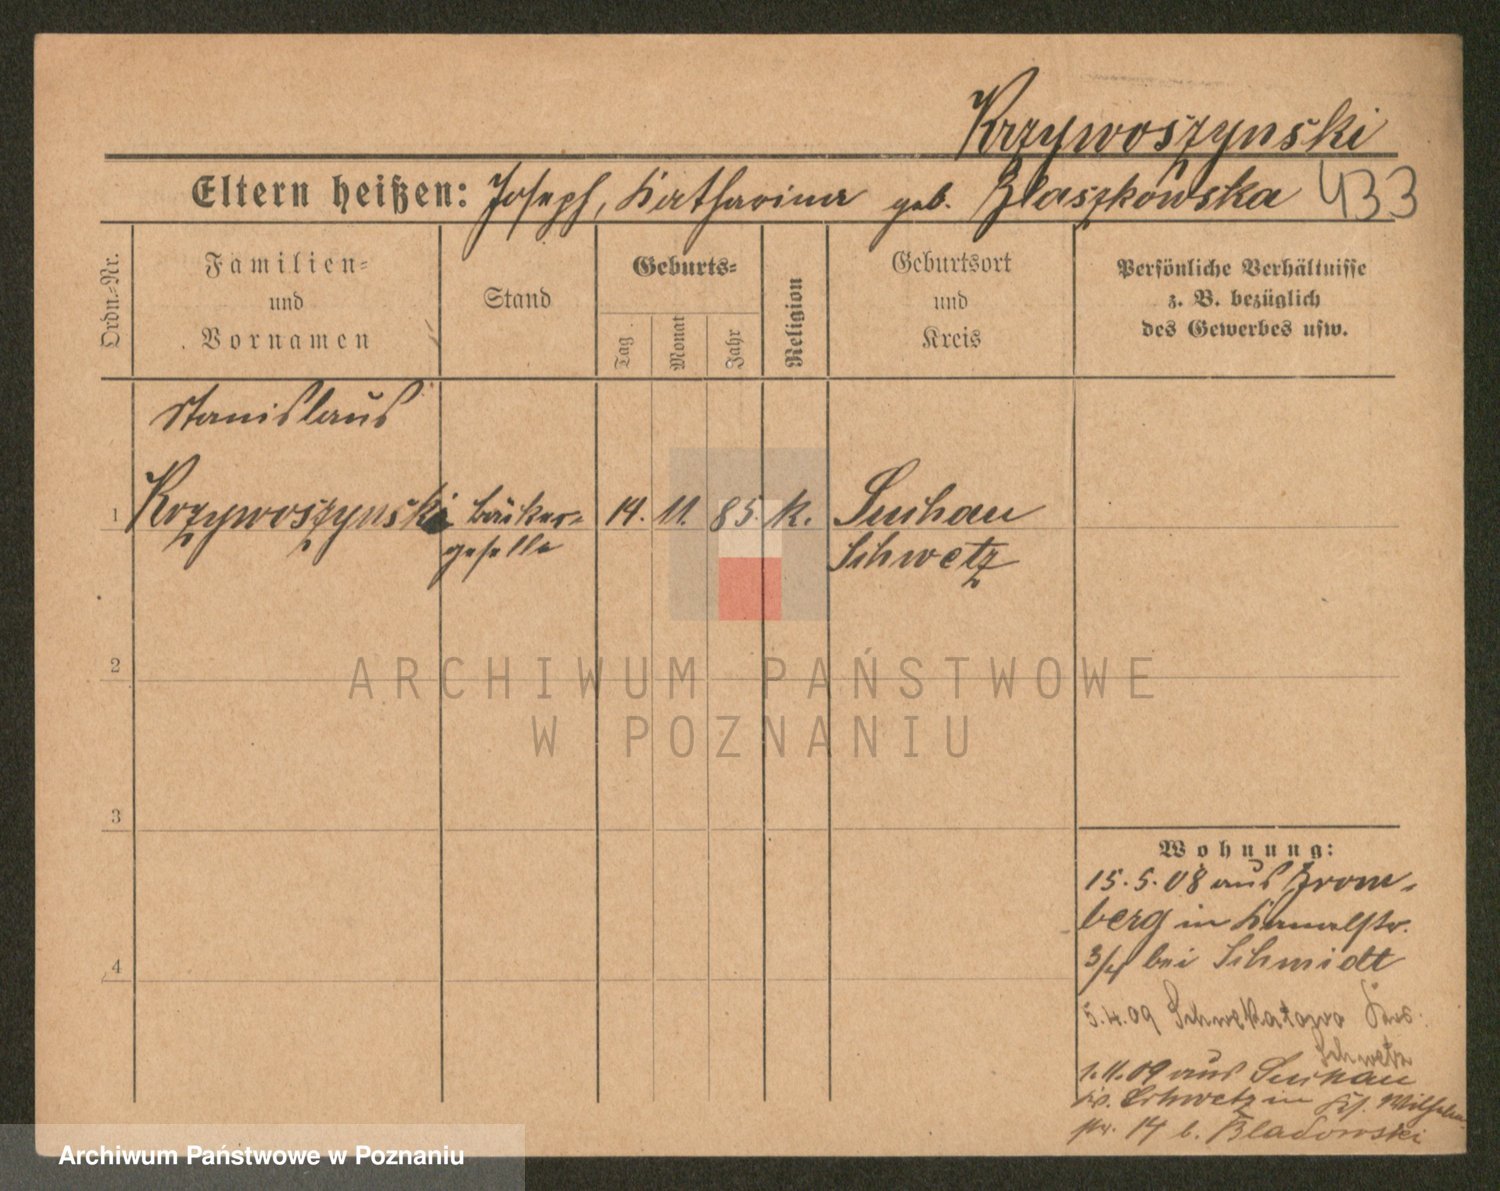 Krzywoszynski
Eltern heißen: Joseph, Katharina geb. Blaszkowska 433
Ordn.-Nr.
Familien-
und
Vornamen
Stand
Geburts-
Tag
Monat
Jahr
Religion
Geburtsort
und
Kreis
Persönliche Verhältnisse
z. B. bezüglich
des Gewerbes usw.
Stanislaus
1 Krzywoszynski Bäcker- 14. 11. 85. k. Suchau
geselle Schwetz
2
3
4
Wohnung:
15.5.08 aus Brom-
berg in Kanalstr.
3/4 bei Schmidt
5.4.09 Schwekatowo Krs.
Schwetz
1.11.09 aus Suchau
Schwetz in Wilhelm
str. 14 b. Bladowski
ARCHIWUM PAŃSTWOWE
W POZNANIU
Archiwum Państwowe w Poznaniu